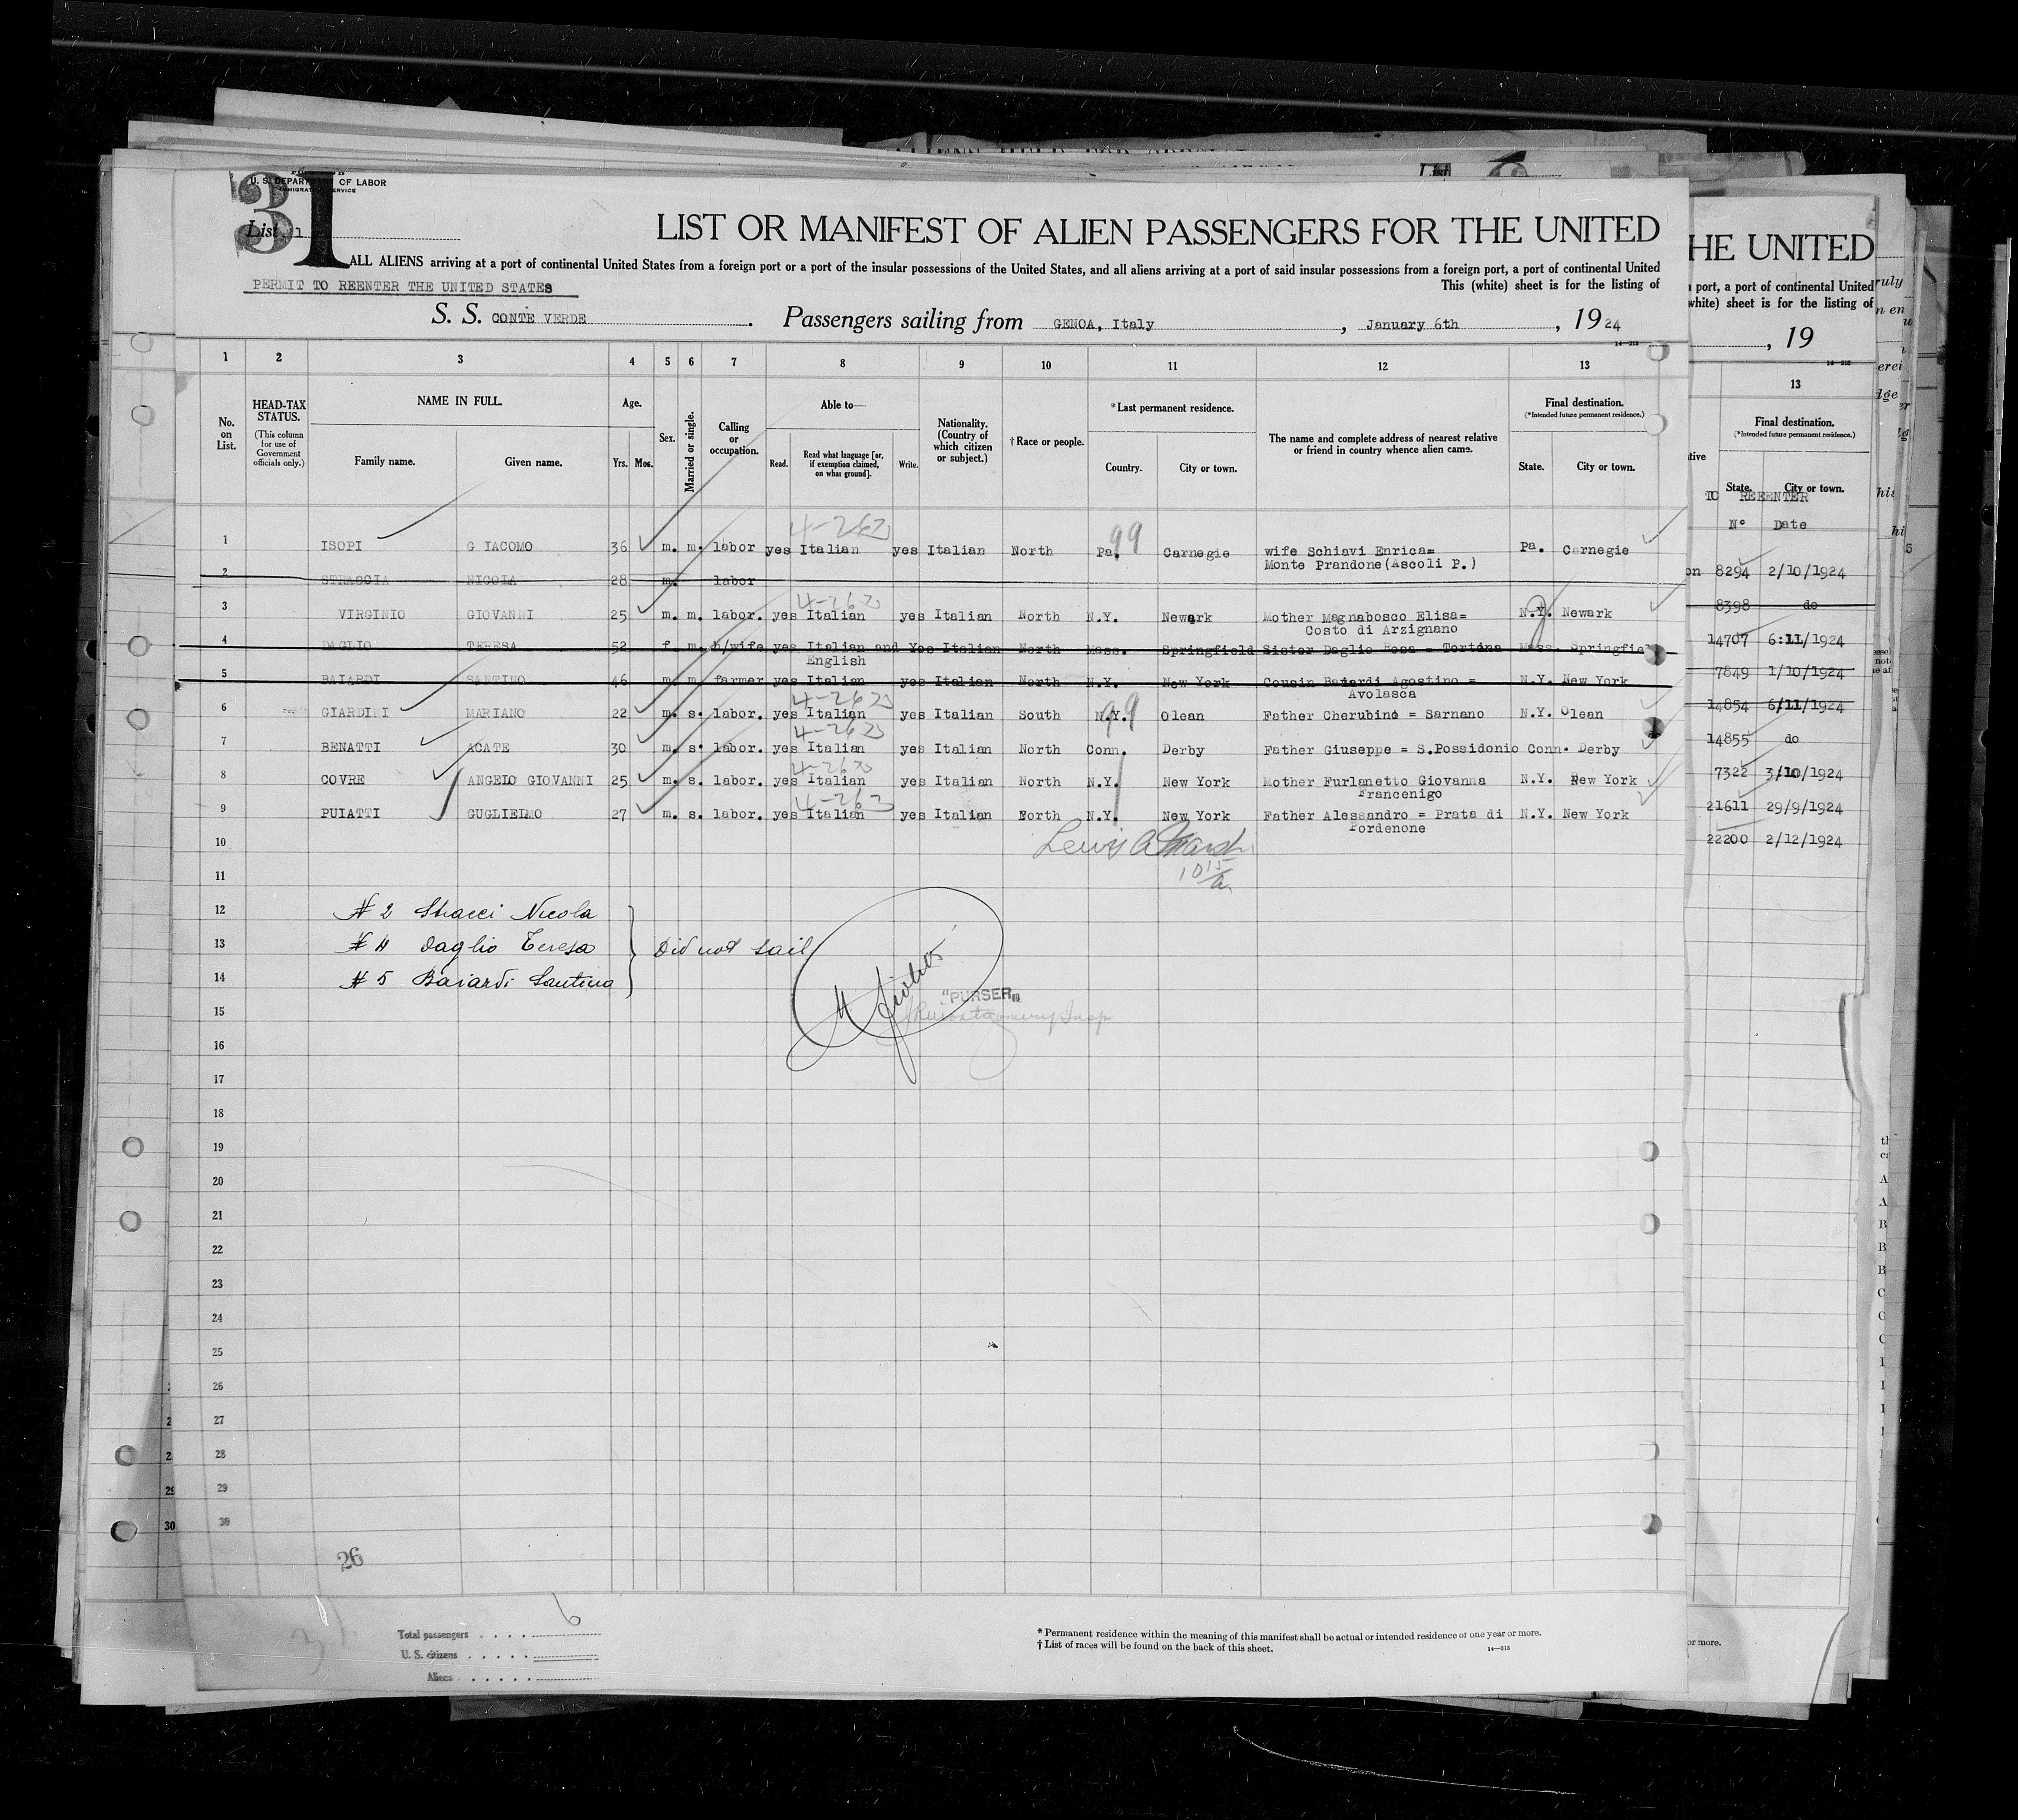 31
U. S. DEPARTMENT OF LABOR
IMMIGRATION SERVICE
List 1
LIST OR MANIFEST OF ALIEN PASSENGERS FOR THE UNITED
ALL ALIENS arriving at a port of continental United States from a foreign port or a port of the insular possessions of the United States, and all aliens arriving at a port of said insular possessions from a foreign port, a port of continental United
PERMIT TO REENTER THE UNITED STATES
This (white) sheet is for the listing of
S. S. CONTE VERDE. Passengers sailing from GENOA, Italy, January 6th, 1924
14-213
1 2 3 4 5 6 7 8 9 10 11 12 13
No. on List.
HEAD-TAX STATUS.
(This column for use of Government officials only.)
NAME IN FULL.
Family name. Given name.
Age.
Yrs. Mos.
Sex.
Married or single.
Calling or occupation.
Able to—
Read. Read what language [or, if exemption claimed, on what ground]. Write.
Nationality. (Country of which citizen or subject.)
† Race or people.
*Last permanent residence.
Country. City or town.
The name and complete address of nearest relative or friend in country whence alien came.
Final destination.
(*Intended future permanent residence.)
State. City or town.
4-262 99
1 ISOPI G IACOMO 36 m. m. labor yes Italian yes Italian North Pa. Carnegie wife Schiavi Enrica= Pa. Carnegie
Monte Prandone(Ascoli P.)
2 STRACCIA NICOLA 28 m. labor
3 VIRGINIO GIOVANNI 25 m. m. labor. yes Italian yes Italian North N.Y. Newark Mother Magnabosco Elisa= N.Y. Newark
Costo di Arzignano
4 DAGLIO TERESA 52 f. m. h/wife yes Italian and Yes Italian North Mass. Springfield Sister Daglio Rosa = Tortona Mass. Springfiel
English
5 BAIARDI SANTINO 46 m. m. farmer yes Italian yes Italian North N.Y. New York Cousin Baiardi Agostino = N.Y. New York
Avolasca
6 GIARDINI MARIANO 22 m. s. labor. yes Italian yes Italian South N.Y. Olean Father Cherubino = Sarnano N.Y. Olean
7 BENATTI ACATE 30 m. s. labor. yes Italian yes Italian North Conn. Derby Father Giuseppe = S.Possidonio Conn. Derby
8 COVRE ANGELO GIOVANNI 25 m. s. labor. yes Italian yes Italian North N.Y. New York Mother Furlanetto Giovanna N.Y. New York
Francenigo
9 PUIATTI GUGLIELMO 27 m. s. labor. yes Italian yes Italian North N.Y. New York Father Alessandro = Prata di N.Y. New York
Pordenone
10
11
12 # 2 Nicola
13 # 4 Daglio Teresa } Did not sail
14 # 5 Baiardi Santino
15 "PURSER"
16
17
18
19
20
21
22
23
24
25
26
27
28
29
30
26
Total passengers 6
U. S. citizens
Aliens
* Permanent residence within the meaning of this manifest shall be actual or intended residence of one year or more.
† List of races will be found on the back of this sheet.
14-213
HE UNITED
port, a port of continental United
(white) sheet is for the listing of
, 19
14-213
13
Final destination.
(*Intended future permanent residence.)
State. City or town.
TO REENTER
N° Date
8294 2/10/1924
8398 do
14707 6:11/1924
7849 1/10/1924
14854 6/11/1924
14855 do
7322 3/10/1924
21611 29/9/1924
22200 2/12/1924
or more.